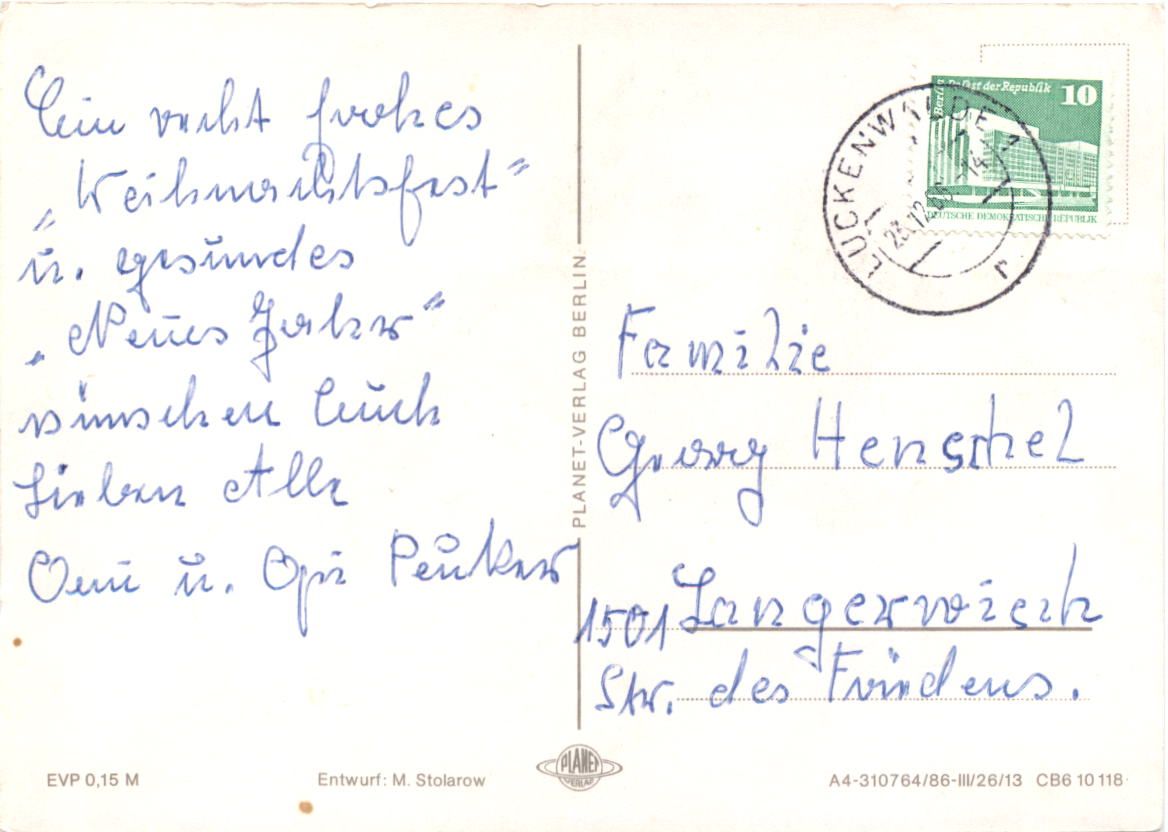 Ein recht frohes
„Weihnachtsfest“
u. gesundes
„Neues Jahr“
wünschen Euch
Lieben Alle
Omi u. Opi Peuker
PLANET-VERLAG BERLIN
Berlin Palast der Republik 10
DEUTSCHE DEMOKRATISCHE REPUBLIK
LUCKENWALDE 1
23.12.86 -14
r
Familie
Georg Henschel
1501 Langerwisch
Str. des Friedens.
EVP 0,15 M
Entwurf: M. Stolarow
PLANET
VERLAG
A4-310764/86-III/26/13 CB6 10 118